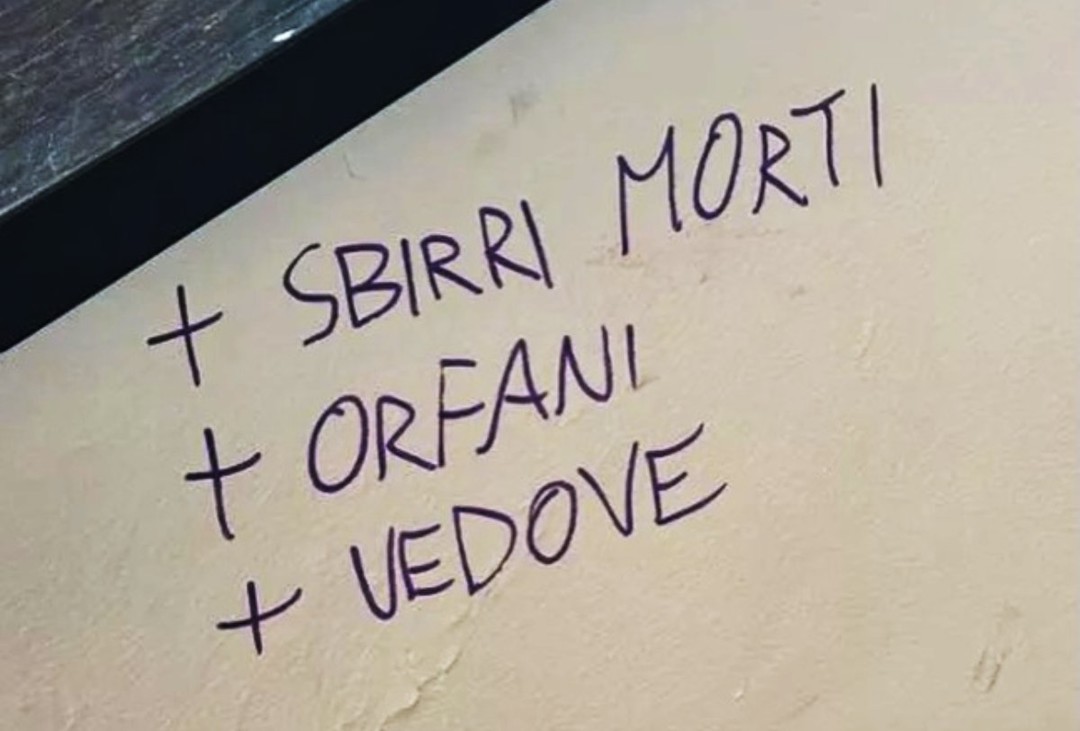 + SBIRRI MORTI
+ ORFANI
+ VEDOVE